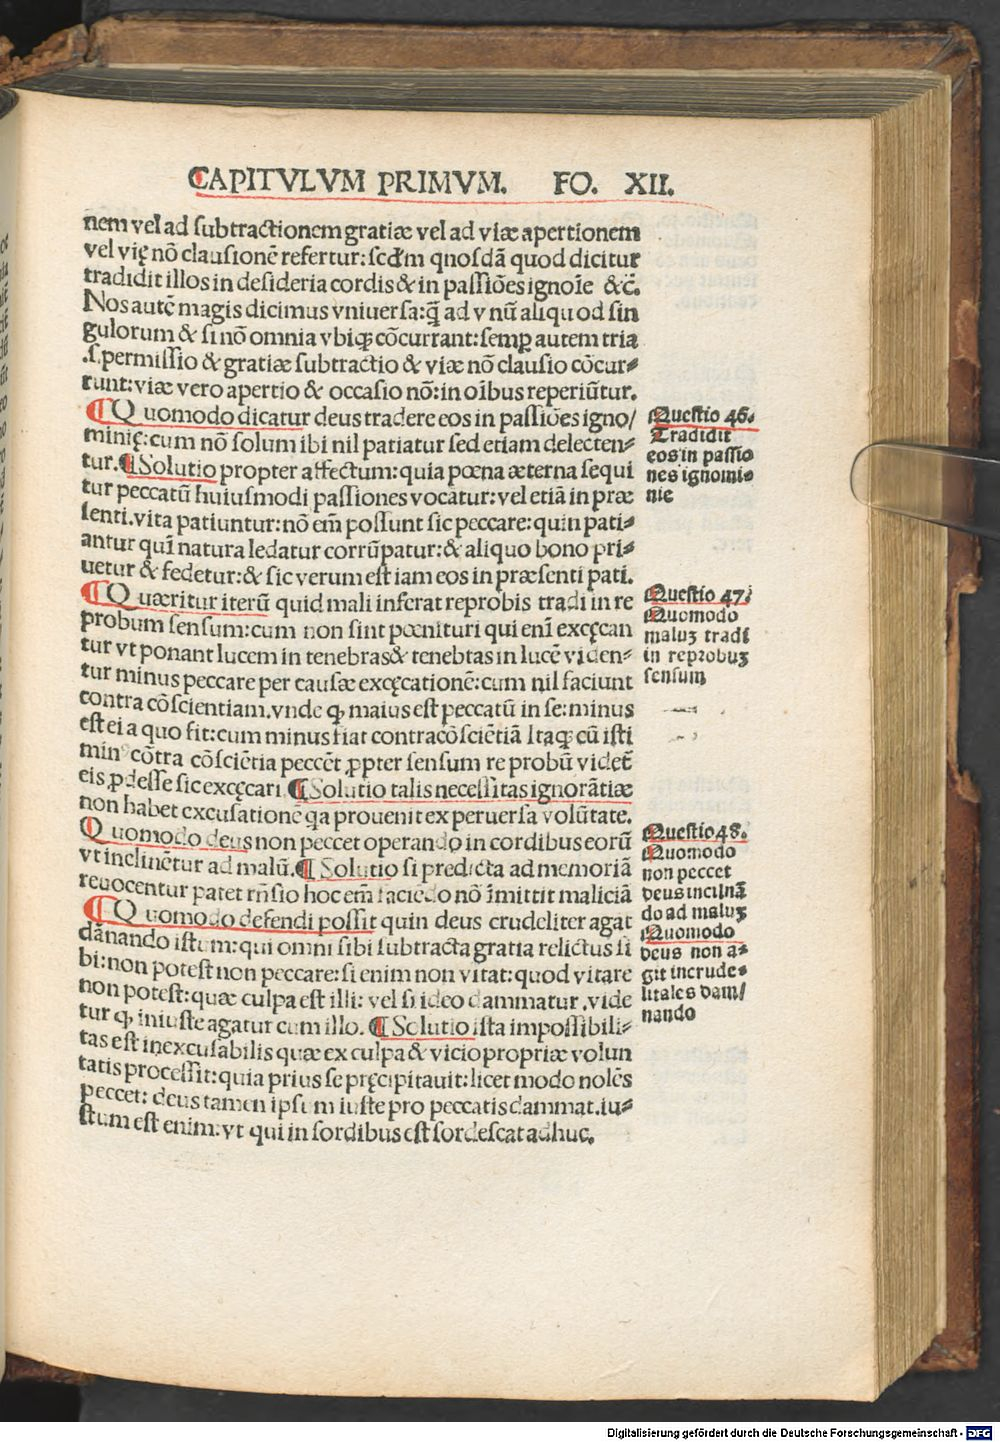 CAPITVLVM PRIMVM. FO. XII.
nem vel ad ſubtractionem gratiæ vel ad viæ apertionem
vel vię nō clauſionē refertur: ſcd̄m quoſdā quod dicitur
tradidit illos in deſideria cordis & in paſſiōes ignoīe &c̄.
Nos autē magis dicimus vniuerſa: ꝙ̄ ad vnū aliquod ſin
gulorum & ſi nō omnia vbiqꝫ cōcurrant: ſemꝑ autem tria
.ſ. permiſſio & gratiæ ſubtractio & viæ nō clauſio cōcur⸗
runt: viæ vero apertio & occaſio nō: in oībus reperiūtur.
¶ Quomodo dicatur deus tradere eos in paſſiōes igno/
minię: cum nō ſolum ibi nil patiatur ſed etiam delecten⸗
tur. ¶ Solutio propter affectum: quia pœna æterna ſequi
tur peccatū huiuſmodi paſſiones vocatur: vel etiā in præ
ſenti. vita patiuntur: nō em̄ poſſunt ſic peccare: quin pati⸗
antur quī natura ledatur corrūpatur: & aliquo bono pri⸗
uetur & fedetur: & ſic verum eſt iam eos in præſenti pati.
¶ Quæritur iterū quid mali inferat reprobis tradi in re
probum ſenſum: cum non ſint pœnituri qui enī excęcan
tur vt ponant lucem in tenebras & tenebtas in lucē viden⸗
tur minus peccare per cauſæ excęcationē: cum nil faciunt
contra cōſcientiam. vnde ꝙ maius eſt peccatū in ſe: minus
eſt ei a quo fit: cum minus fiat contra cōſciētiā Itaqꝫ cū iſti
minꝰ cōtra cōſciētia peccēt ꝓpter ſenſum reprobū videt̄
eis ꝓdeſſe ſic excęcari ¶ Solutio talis neceſſitas ignorātiæ
non habet excuſationē q̄a prouenit ex peruerſa volūtate.
Quomodo deus non peccet operando in cordibus eorū
vt inclinētur ad malū. ¶ Solutio ſi predicta ad memoriā
reuocentur patet rn̄ſio hoc em̄ faciēdo nō īmittit maliciā
¶ Quomodo defendi poſſit quin deus crudeliter agat
dānando iſtum: qui omni ſibi ſubtracta gratia relictus ſi
bi: non poteſt non peccare: ſi enim non vitat: quod vitare
non poteſt: quæ culpa eſt illi: vel ſi ideo dammatur. vide
tur ꝙ iniuſte agatur cum illo. ¶ Solutio iſta impoſſibili⸗
tas eſt inexcuſabilis quæ ex culpa & vicio propriæ volun
tatis proceſſit: quia prius ſe pręcipitauit: licet modo nolēs
peccet: deus tamen ipſum iuſte pro peccatis dammat. iu⸗
ſtum eſt enim: vt qui in ſordibus eſt ſordeſcat adhuc.
Queſtio 46.
Tradidit
eos in paſſio
nes ignomi⸗
nie
Queſtio 47.
Quomodo
maluꝫ tradi
in reprobuꝫ
ſenſum
Queſtio 48.
Quomodo
non peccet
deus inclinā
do ad maluꝫ
Quomodo
deus non a⸗
git incrude⸗
litales dam/
nando
Digitalisierung gefördert durch die Deutsche Forschungsgemeinschaft - DFG